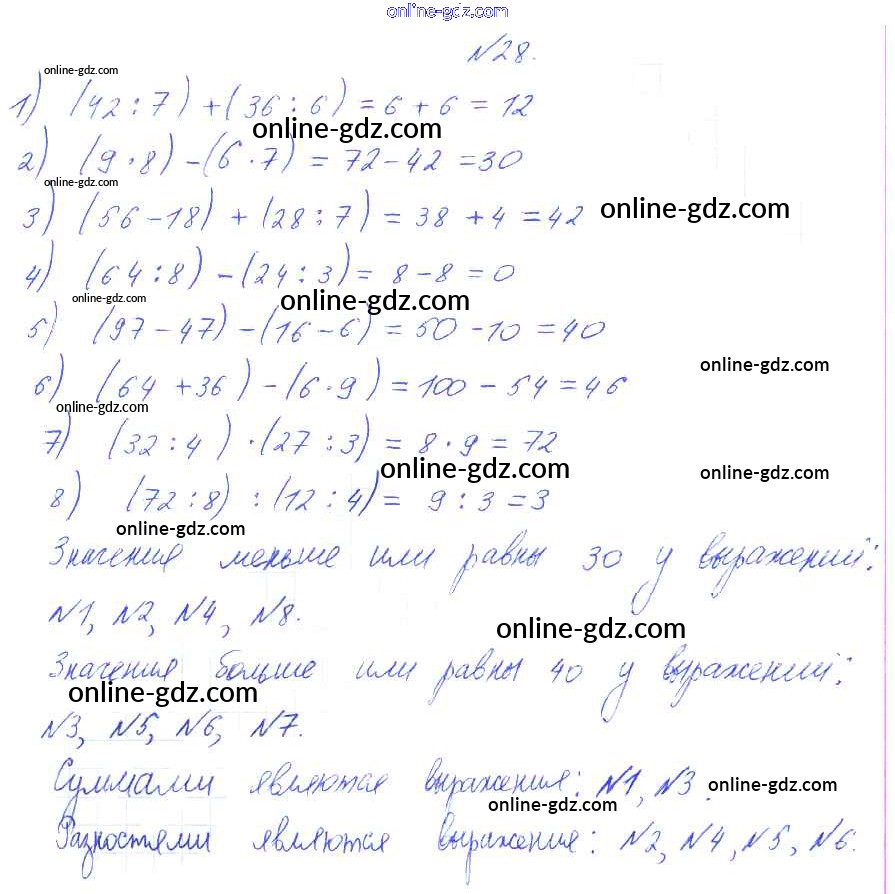 online-gdz.com
№28.
online-gdz.com
1) (42 : 7) + (36 : 6) = 6 + 6 = 12
online-gdz.com
2) (9 · 8) - (6 · 7) = 72 - 42 = 30
online-gdz.com
3) (56 - 18) + (28 : 7) = 38 + 4 = 42
online-gdz.com
4) (64 : 8) - (24 : 3) = 8 - 8 = 0
online-gdz.com
online-gdz.com
5) (97 - 47) - (16 - 6) = 50 - 10 = 40
online-gdz.com
6) (64 + 36) - (6 · 9) = 100 - 54 = 46
online-gdz.com
7) (32 : 4) · (27 : 3) = 8 · 9 = 72
online-gdz.com
online-gdz.com
8) (72 : 8) : (12 : 4) = 9 : 3 = 3
online-gdz.com
Значения меньше или равны 30 у выражений:
№1, №2, №4, №8.
online-gdz.com
Значения больше или равны 40 у выражений:
online-gdz.com
№3, №5, №6, №7.
Суммами являются выражения: №1, №3.
online-gdz.com
online-gdz.com
Разностями являются выражения: №2, №4, №5, №6.